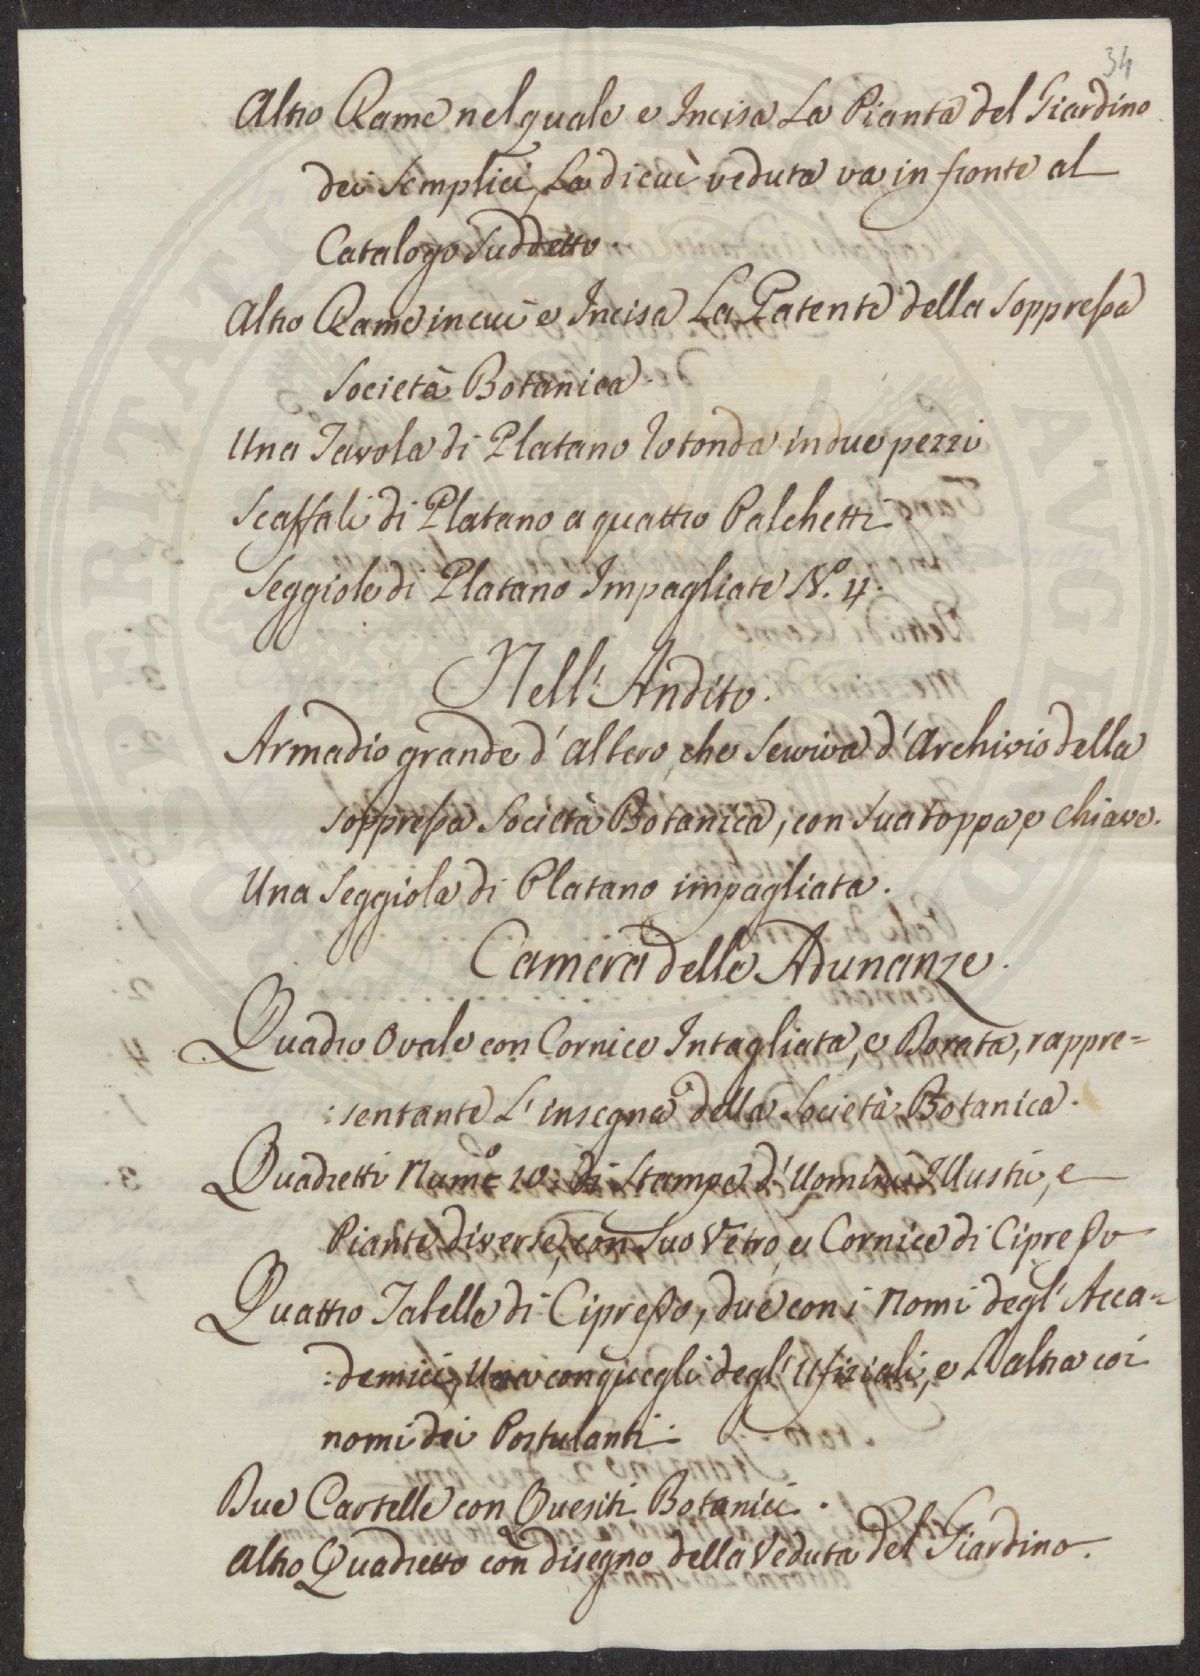 34
Altro Rame nel quale e Incisa La Pianta del Giardino
dei Semplici, La di cui veduta va in fronte al
Catalogo Suddetto.
Altro Rame in cui è Incisa La Patente della Soppressa
Società Botanica.
Una Tavola di Platano Rotonda in due pezzi
Scaffali di Platano a quattro Palchetti
Seggiole di Platano Impagliate N.º 4.
Nell' Andito.
Armadio grande d' Albero, che Serviva d' Archivio della
Soppressa Società Botanica, con Sua toppa e Chiave.
Una Seggiola di Platano impagliata.
Camera delle Adunanze.
Quadro Ovale con Cornice Intagliata, e Dorata, rappre=
:sentante L' insegna della Società Botanica.
Quadretti Num.º 10: di Stampe d' Uomini Illustri, e
Piante diverse, con Suo Vetro, e Cornice di Cipresso
Quattro Tabelle di Cipresso, due con i Nomi degl' Acca=
:demici, Una con quegli degl' Ufiziali, e L'altra coi
nomi dei Postulanti.
Due Cartelle con Quesiti Botanici.
Altro Quadretto con disegno della Veduta del Giardino.